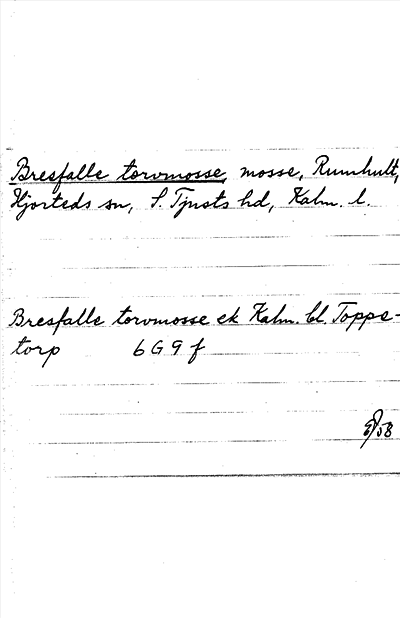 Bresfalle torvmosse, mosse, Rumhult,
Hjorteds sn, S. Tjusts hd, Kalm. l.
Bresfalle torvmosse ek Kalm. bl. Toppe-
torp 6G9f